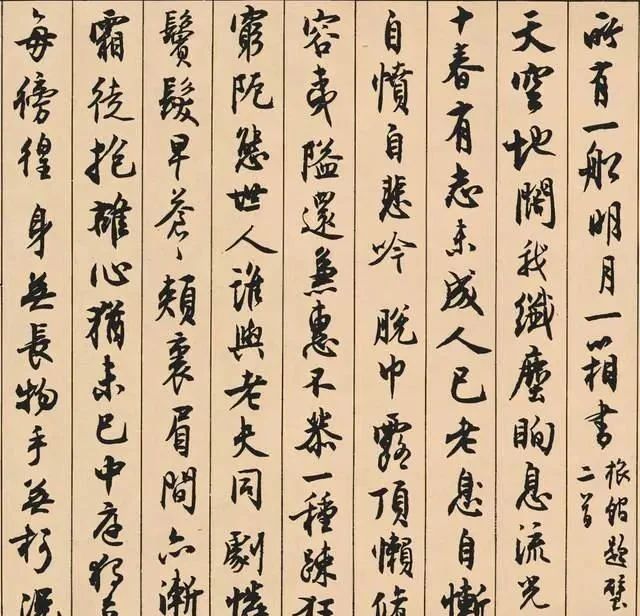 所有一船明月一相書
旅館題壁
二首
天空地闊我纖塵眴息流光
十春有志未成人已老息自慚
自憤自悲吟 脫巾露頂懶脩
容夷隘還兼惠不恭一種疎狂
窮阨態世人誰與老夫同劇憐
鬢髮早蒼々頰裏眉間亦漸
霜徒抱雄心猶未已中庭獨
每徬徨身無長物手無柯